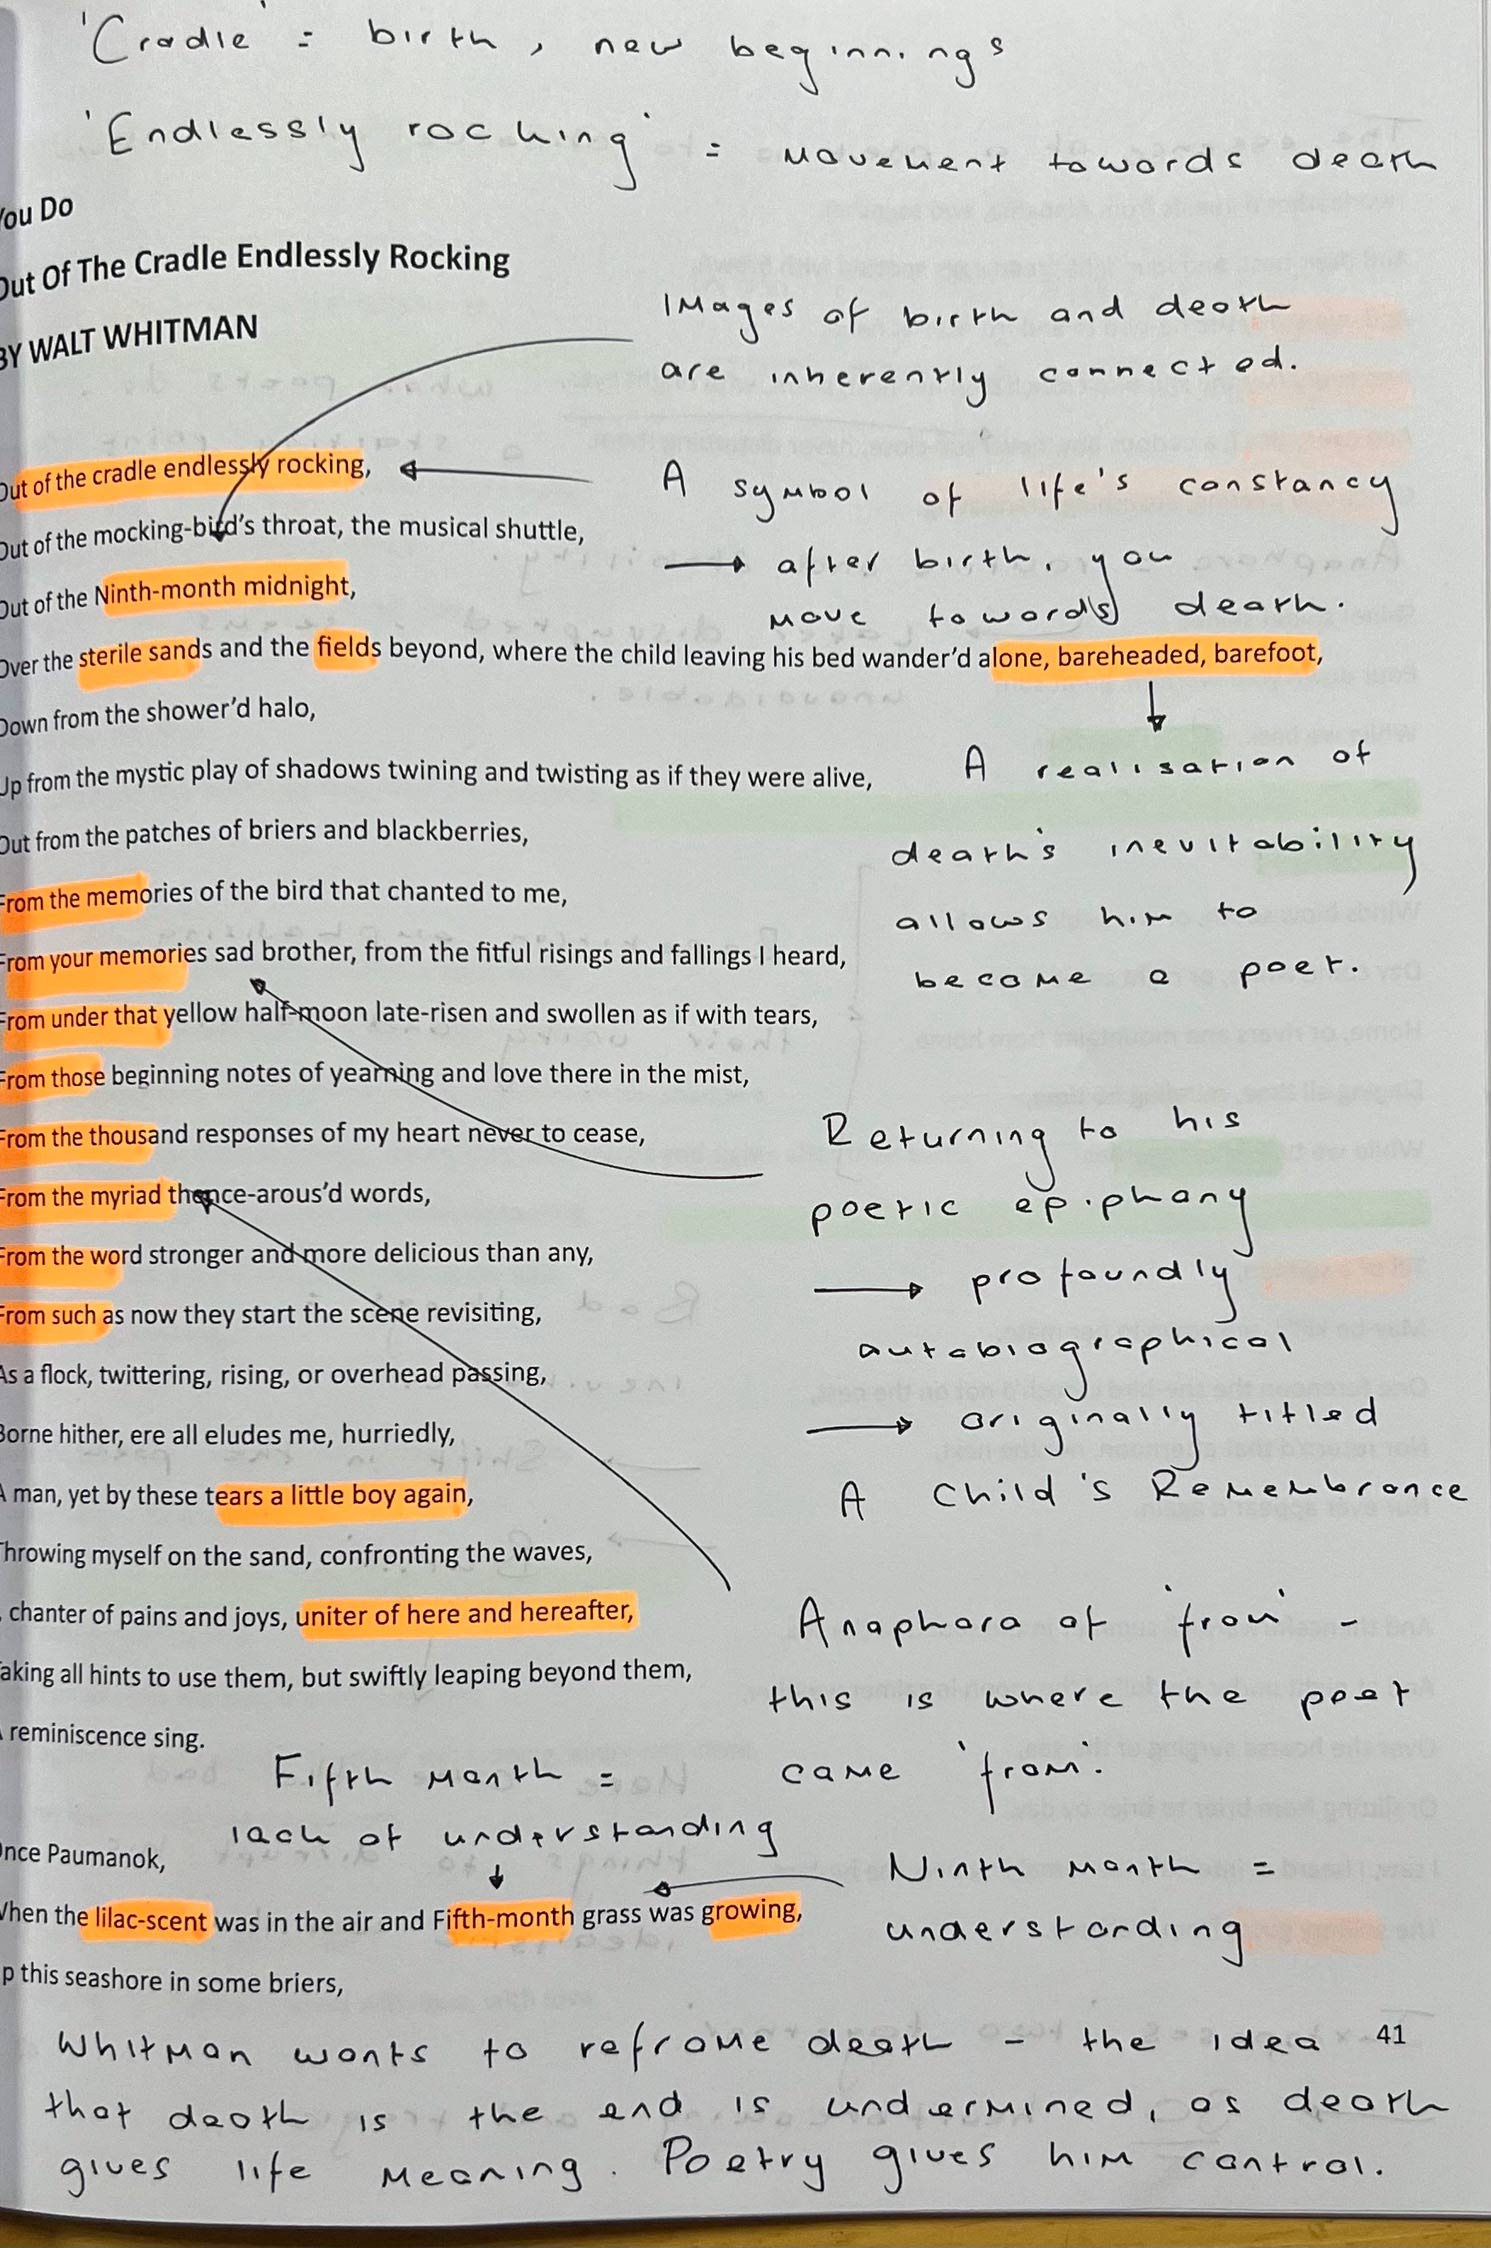 'Cradle' = birth, new beginnings
'Endlessly rocking' = movement towards death
You Do
Out Of The Cradle Endlessly Rocking
BY WALT WHITMAN
Images of birth and death
are inherently connected.
Out of the cradle endlessly rocking,
A symbol of life's constancy
Out of the mocking-bird's throat, the musical shuttle,
→ after birth, you
Out of the Ninth-month midnight,
move towards death.
Over the sterile sands and the fields beyond, where the child leaving his bed wander'd alone, bareheaded, barefoot,
Down from the shower'd halo,
Up from the mystic play of shadows twining and twisting as if they were alive,
A realisation of
death's inevitability
allows him to
become a poet.
Out from the patches of briers and blackberries,
From the memories of the bird that chanted to me,
From your memories sad brother, from the fitful risings and fallings I heard,
From under that yellow half-moon late-risen and swollen as if with tears,
From those beginning notes of yearning and love there in the mist,
From the thousand responses of my heart never to cease,
From the myriad thence-arous'd words,
From the word stronger and more delicious than any,
From such as now they start the scene revisiting,
Returning to his
poetic epiphany
→ profoundly
autobiographical
→ originally titled
A Child's Remembrance
As a flock, twittering, rising, or overhead passing,
Borne hither, ere all eludes me, hurriedly,
A man, yet by these tears a little boy again,
Throwing myself on the sand, confronting the waves,
, chanter of pains and joys, uniter of here and hereafter,
Taking all hints to use them, but swiftly leaping beyond them,
reminiscence sing.
Anaphora of 'from' -
this is where the poet
came 'from'.
Fifth month =
lack of understanding
Once Paumanok,
Ninth month =
understanding
When the lilac-scent was in the air and Fifth-month grass was growing,
p this seashore in some briers,
41
Whitman wants to reframe death - the idea
that death is the end is undermined, as death
gives life meaning. Poetry gives him control.